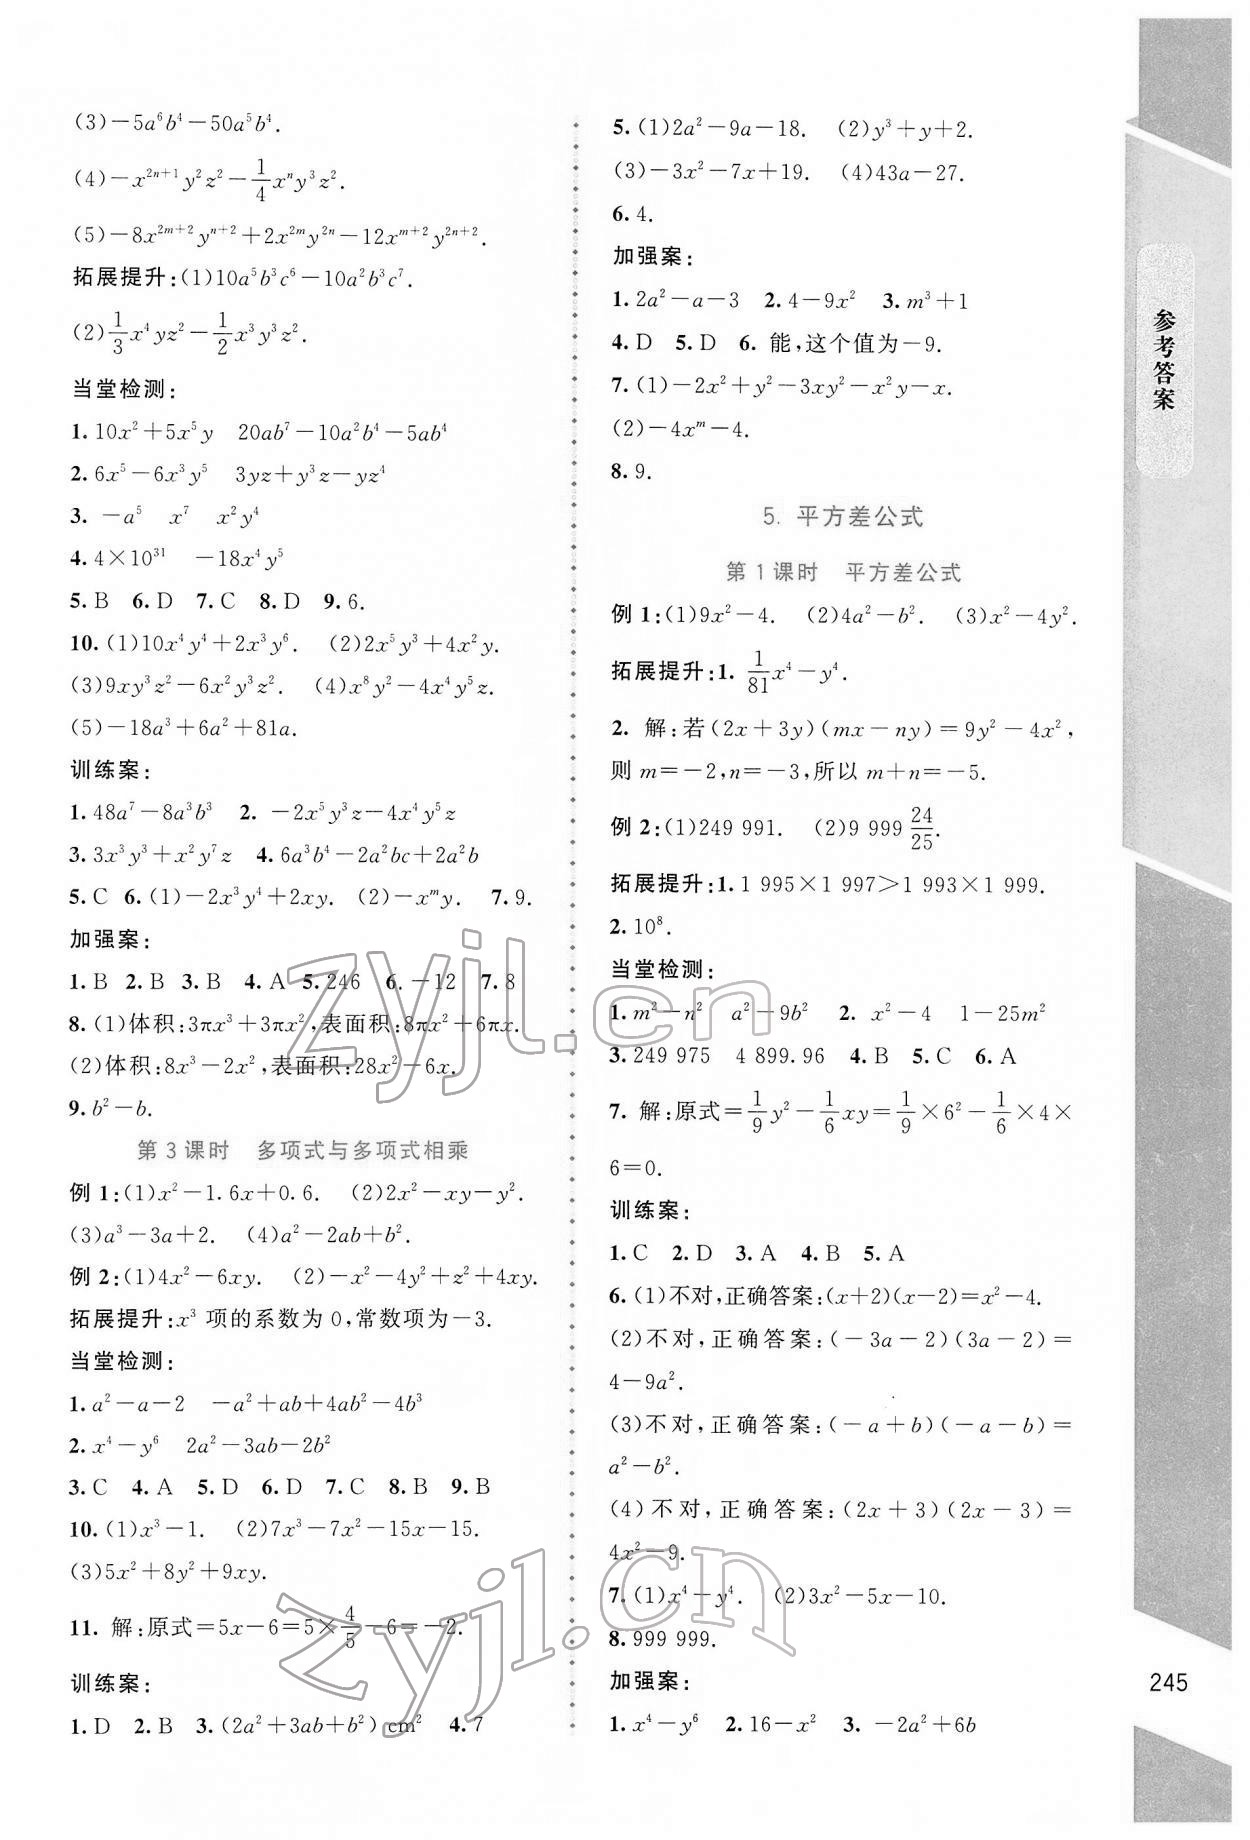 (3)－5a⁶b⁴－50a⁵b⁴.
(4)－x²ⁿ⁺¹y²z²－1/4xⁿy³z².
(5)－8x²ᵐ⁺²yⁿ⁺²＋2x²ᵐy²ⁿ－12xᵐ⁺²y²ⁿ⁺².
拓展提升:(1)10a⁵b³c⁶－10a²b³c⁷.
(2)1/3x⁴yz²－1/2x³y³z².
当堂检测:
1. 10x²＋5x⁵y 20ab⁷－10a²b⁴－5ab⁴
2. 6x⁵－6x³y⁵ 3yz＋y³z－yz⁴
3. －a⁵ x⁷ x²y⁴
4. 4×10³¹ －18x⁴y⁵
5. B 6. D 7. C 8. D 9. 6.
10. (1)10x⁴y⁴＋2x³y⁶. (2)2x⁵y³＋4x²y.
(3)9xy³z²－6x²y³z². (4)x⁸y²－4x⁴y⁵z.
(5)－18a³＋6a²＋81a.
训练案:
1. 48a⁷－8a³b³ 2. －2x⁵y³z－4x⁴y⁵z
3. 3x³y³＋x²y⁷z 4. 6a³b⁴－2a²bc＋2a²b
5. C 6. (1)－2x³y⁴＋2xy. (2)－xᵐy. 7. 9.
加强案:
1. B 2. B 3. B 4. A 5. 246 6. －12 7. 8
8. (1)体积:3πx³＋3πx²,表面积:8πx²＋6πx.
(2)体积:8x³－2x²,表面积:28x²－6x.
9. b²－b.
第 3 课时 多项式与多项式相乘
例 1:(1)x²－1.6x＋0.6. (2)2x²－xy－y².
(3)a³－3a＋2. (4)a²－2ab＋b².
例 2:(1)4x²－6xy. (2)－x²－4y²＋z²＋4xy.
拓展提升:x³ 项的系数为 0,常数项为－3.
当堂检测:
1. a²－a－2 －a²＋ab＋4ab²－4b³
2. x⁴－y⁶ 2a²－3ab－2b²
3. C 4. A 5. D 6. D 7. C 8. B 9. B
10. (1)x³－1. (2)7x³－7x²－15x－15.
(3)5x²＋8y²＋9xy.
11. 解:原式＝5x－6＝5×4/5－6＝－2.
训练案:
1. D 2. B 3. (2a²＋3ab＋b²)cm² 4. 7
5. (1)2a²－9a－18. (2)y³＋y＋2.
(3)－3x²－7x＋19. (4)43a－27.
6. 4.
加强案:
1. 2a²－a－3 2. 4－9x² 3. m³＋1
4. D 5. D 6. 能,这个值为－9.
7. (1)－2x²＋y²－3xy²－x²y－x.
(2)－4xᵐ－4.
8. 9.
5. 平方差公式
第 1 课时 平方差公式
例 1:(1)9x²－4. (2)4a²－b². (3)x²－4y².
拓展提升:1. 1/81x⁴－y⁴.
2. 解:若(2x＋3y)(mx－ny)＝9y²－4x²,
则 m＝－2,n＝－3,所以 m＋n＝－5.
例 2:(1)249 991. (2)9 999 24/25.
拓展提升:1. 1 995×1 997＞1 993×1 999.
2. 10⁸.
当堂检测:
1. m²－n² a²－9b² 2. x²－4 1－25m²
3. 249 975 4 899.96 4. B 5. C 6. A
7. 解:原式＝1/9y²－1/6xy＝1/9×6²－1/6×4×
6＝0.
训练案:
1. C 2. D 3. A 4. B 5. A
6. (1)不对,正确答案:(x＋2)(x－2)＝x²－4.
(2)不对,正确答案:(－3a－2)(3a－2)＝
4－9a².
(3)不对,正确答案:(－a＋b)(－a－b)＝
a²－b².
(4)不对,正确答案:(2x＋3)(2x－3)＝
4x²－9.
7. (1)x⁴－y⁴. (2)3x²－5x－10.
8. 999 999.
加强案:
1. x⁴－y⁶ 2. 16－x² 3. －2a²＋6b
参考答案
245
zyjl.cn
zyjl.cn